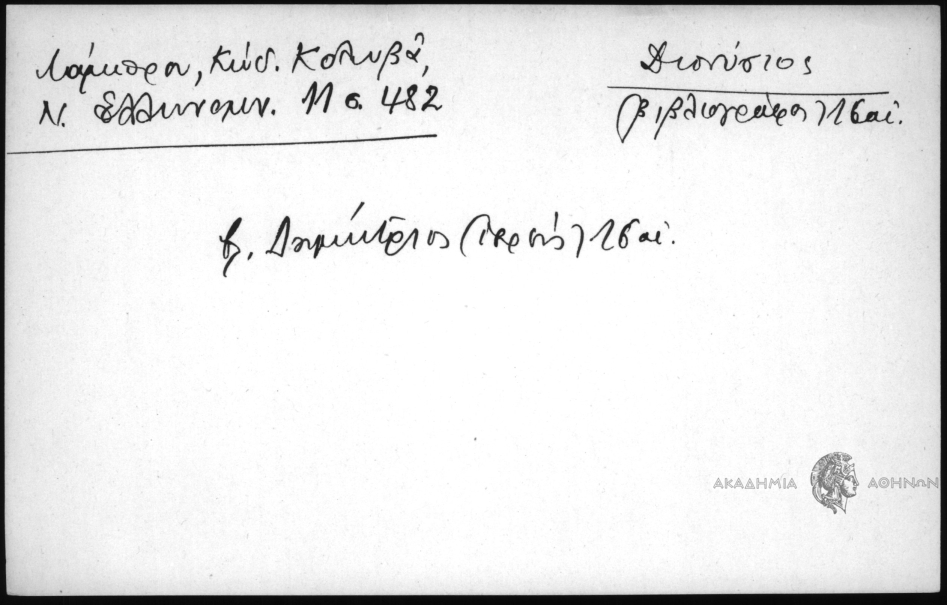 Λάμπρου, Κώδ. Κολυβᾶ,
Ν. Ἑλληνομν. 11 σ. 482
Διονύσιος
(βιβλιογράφος) 16 αἰ.
βλ. Δημήτριος (ἱερεύς) 16 αἰ.
ΑΚΑΔΗΜΙΑ ΑΘΗΝΩΝ